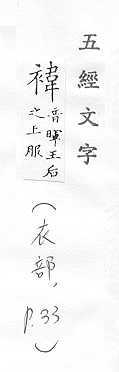 五經文字
褘 音暉王后之上服
（衣部，p.33）